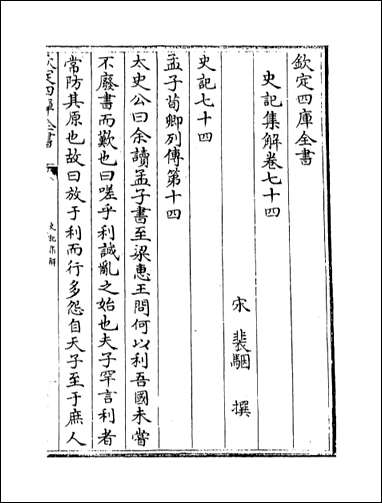 欽定四庫全書
史記集解卷七十四
宋 裴駰 撰
史記七十四
孟子荀卿列傳第十四
太史公曰余讀孟子書至梁惠王問何以利吾國未嘗
不廢書而歎也曰嗟乎利誠亂之始也夫子罕言利者
常防其原也故曰放于利而行多怨自天子至于庶人
欽定四庫全書
史記集解